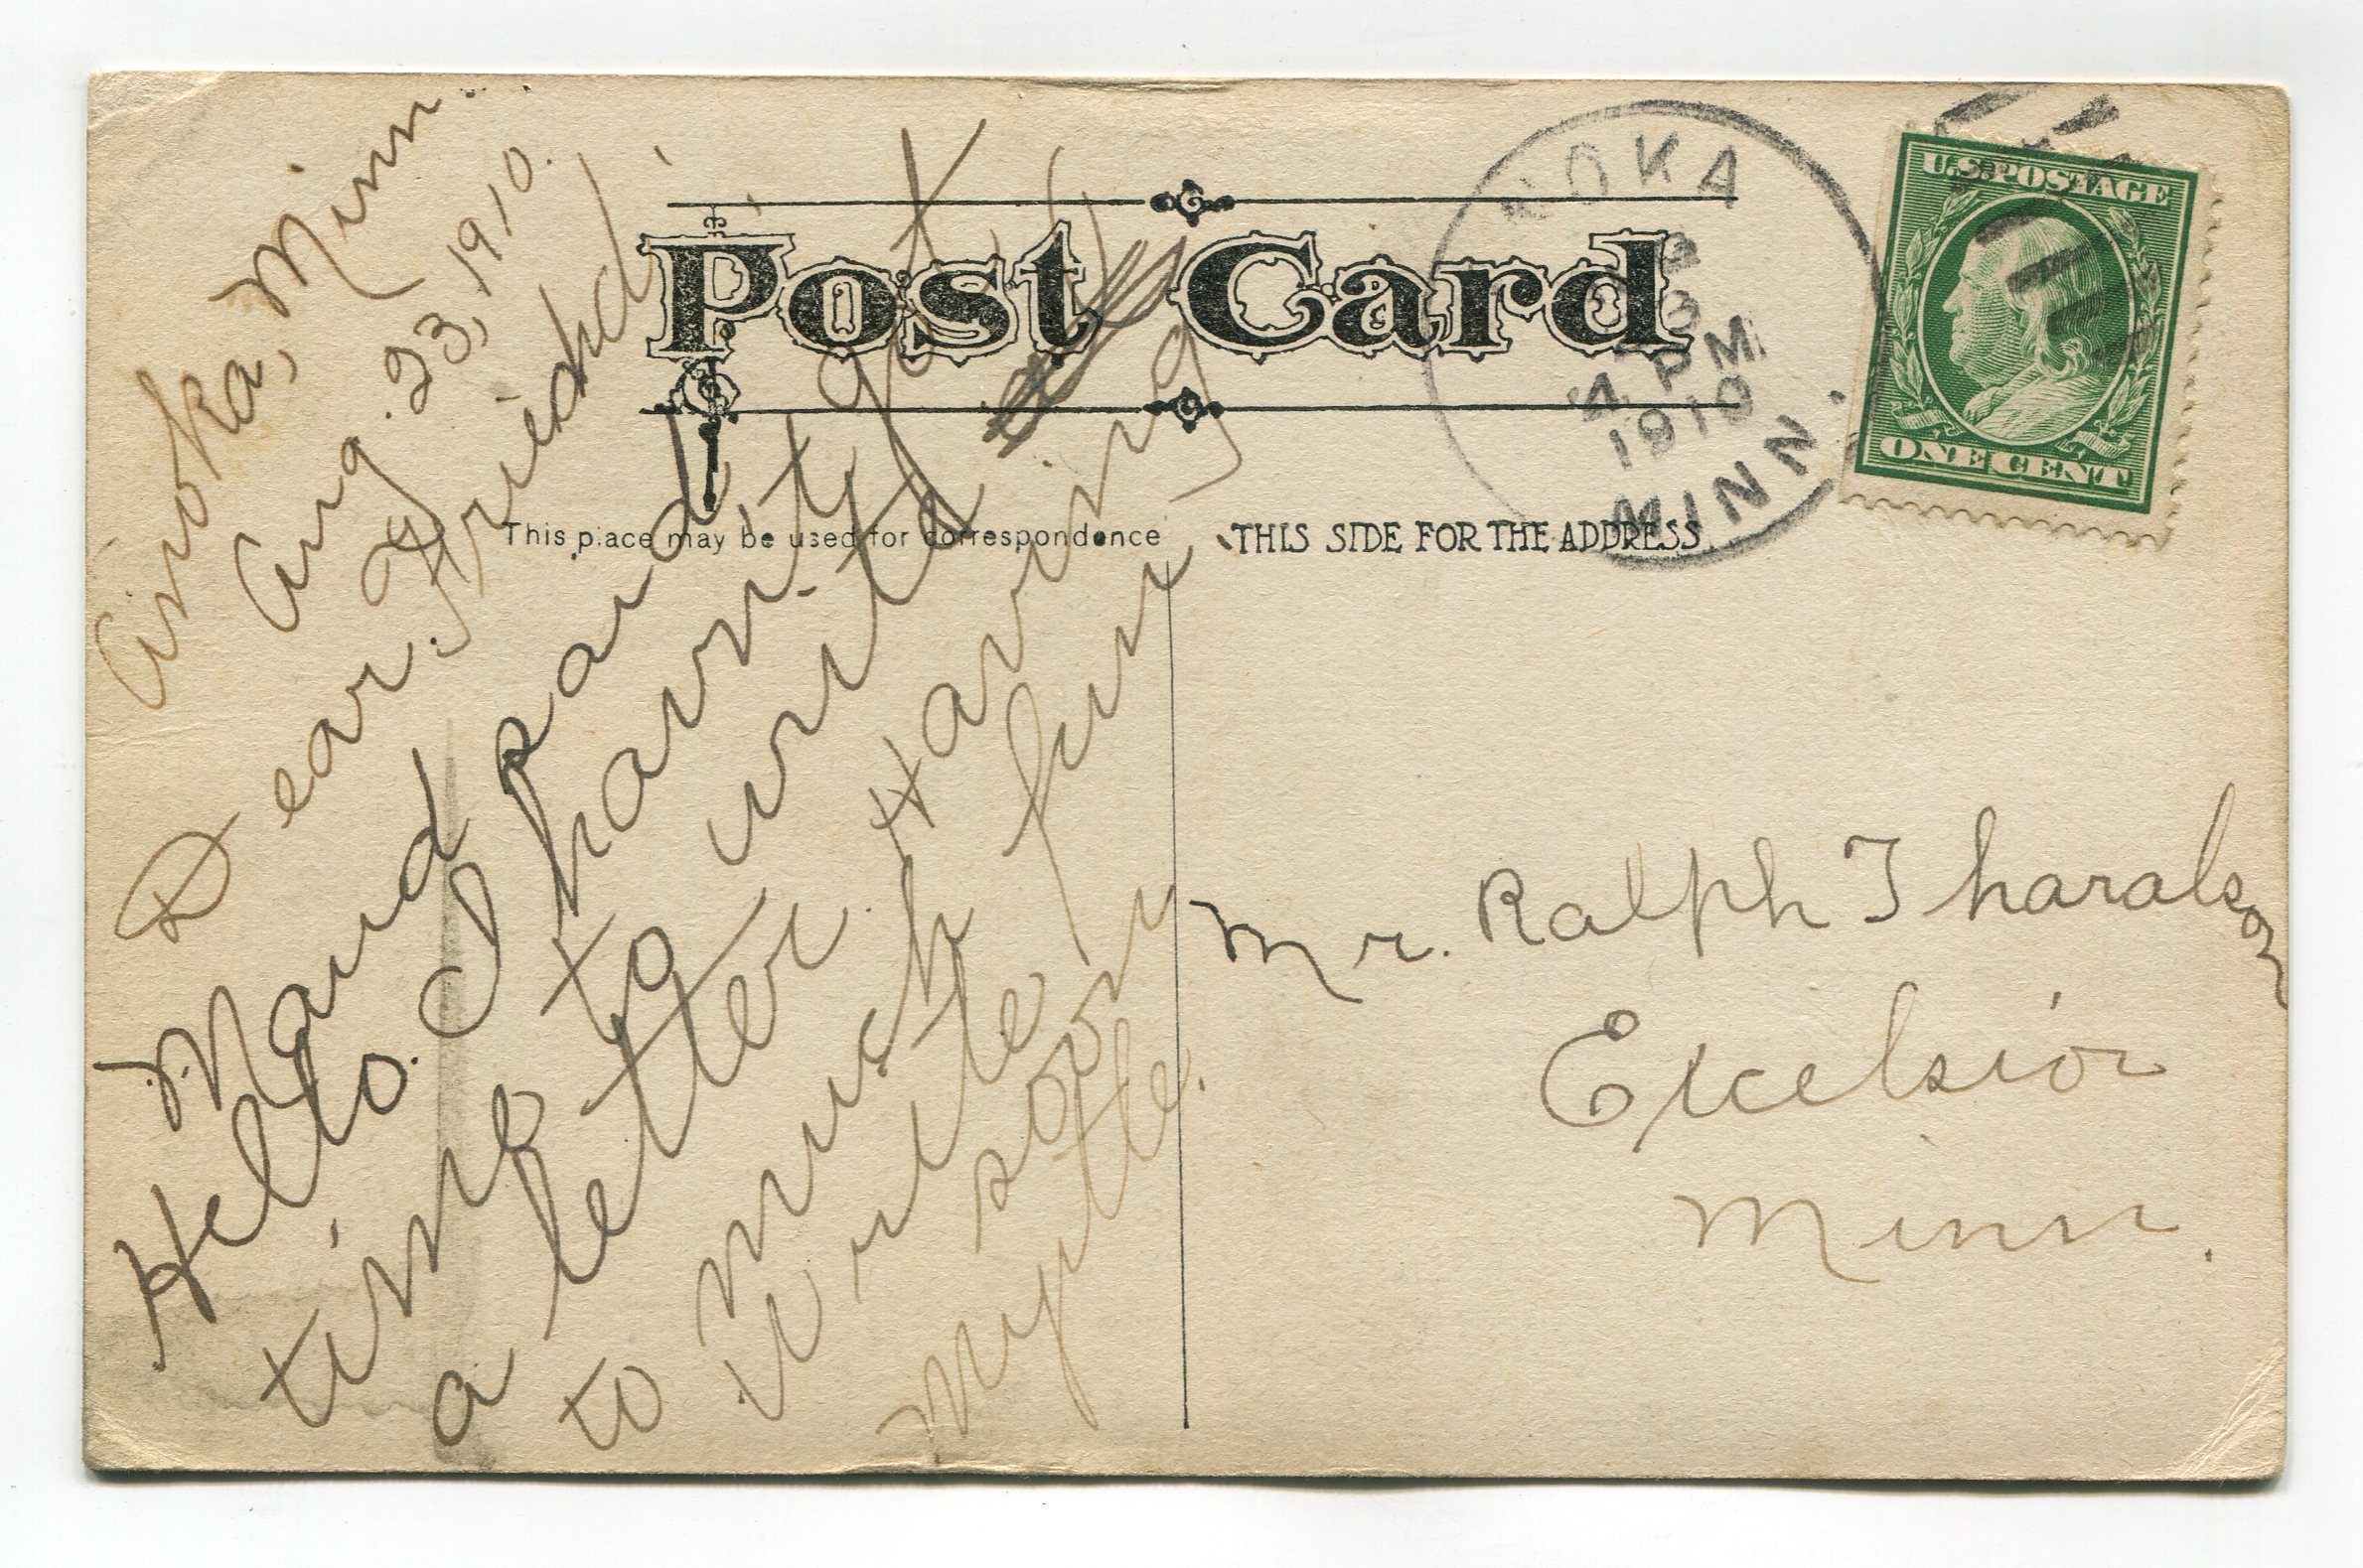 Anoka, Minn.
Aug. 23, 1910.
Dear Friend,
Maud pard
Hello. I havn't got
time to write
a letter. Having
to much fun
write soon
Myrtle.
Post Card
This place may be used for correspondence
THIS SIDE FOR THE ADDRESS
NOKA
4 PM
1910
MINN.
U.S. POSTAGE
ONE CENT
Mr. Ralph Tharalson
Excelsior
Minn.